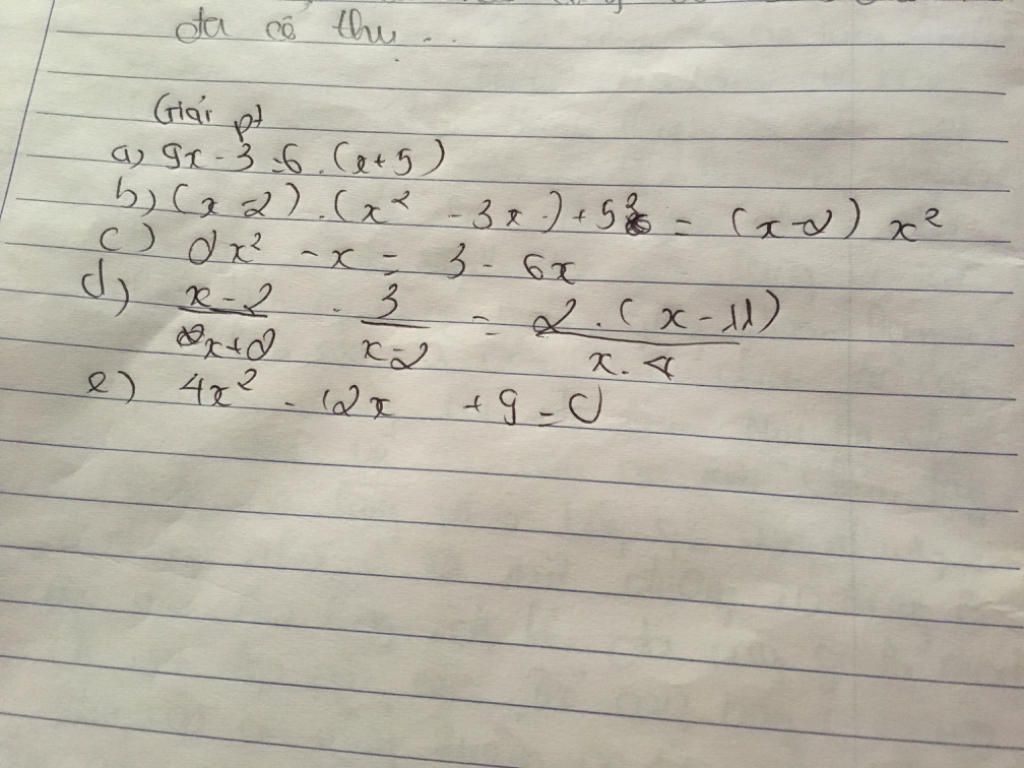 đã có thu..
Giải pt
a) 9x - 3 = 6 . (x + 5)
b) (x - 2) . (x² - 3x) + 5 = (x - 2) x²
c) 2x² - x = 3 - 6x
d) \frac{x - 2}{x + 2} - \frac{3}{x - 2} = \frac{2 . (x - 11)}{x . 4}
e) 4x² - 12x + 9 = 0